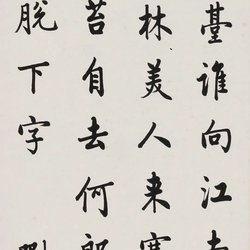 臺誰向江南
林美人来寒
苔自去何郎
脱下字